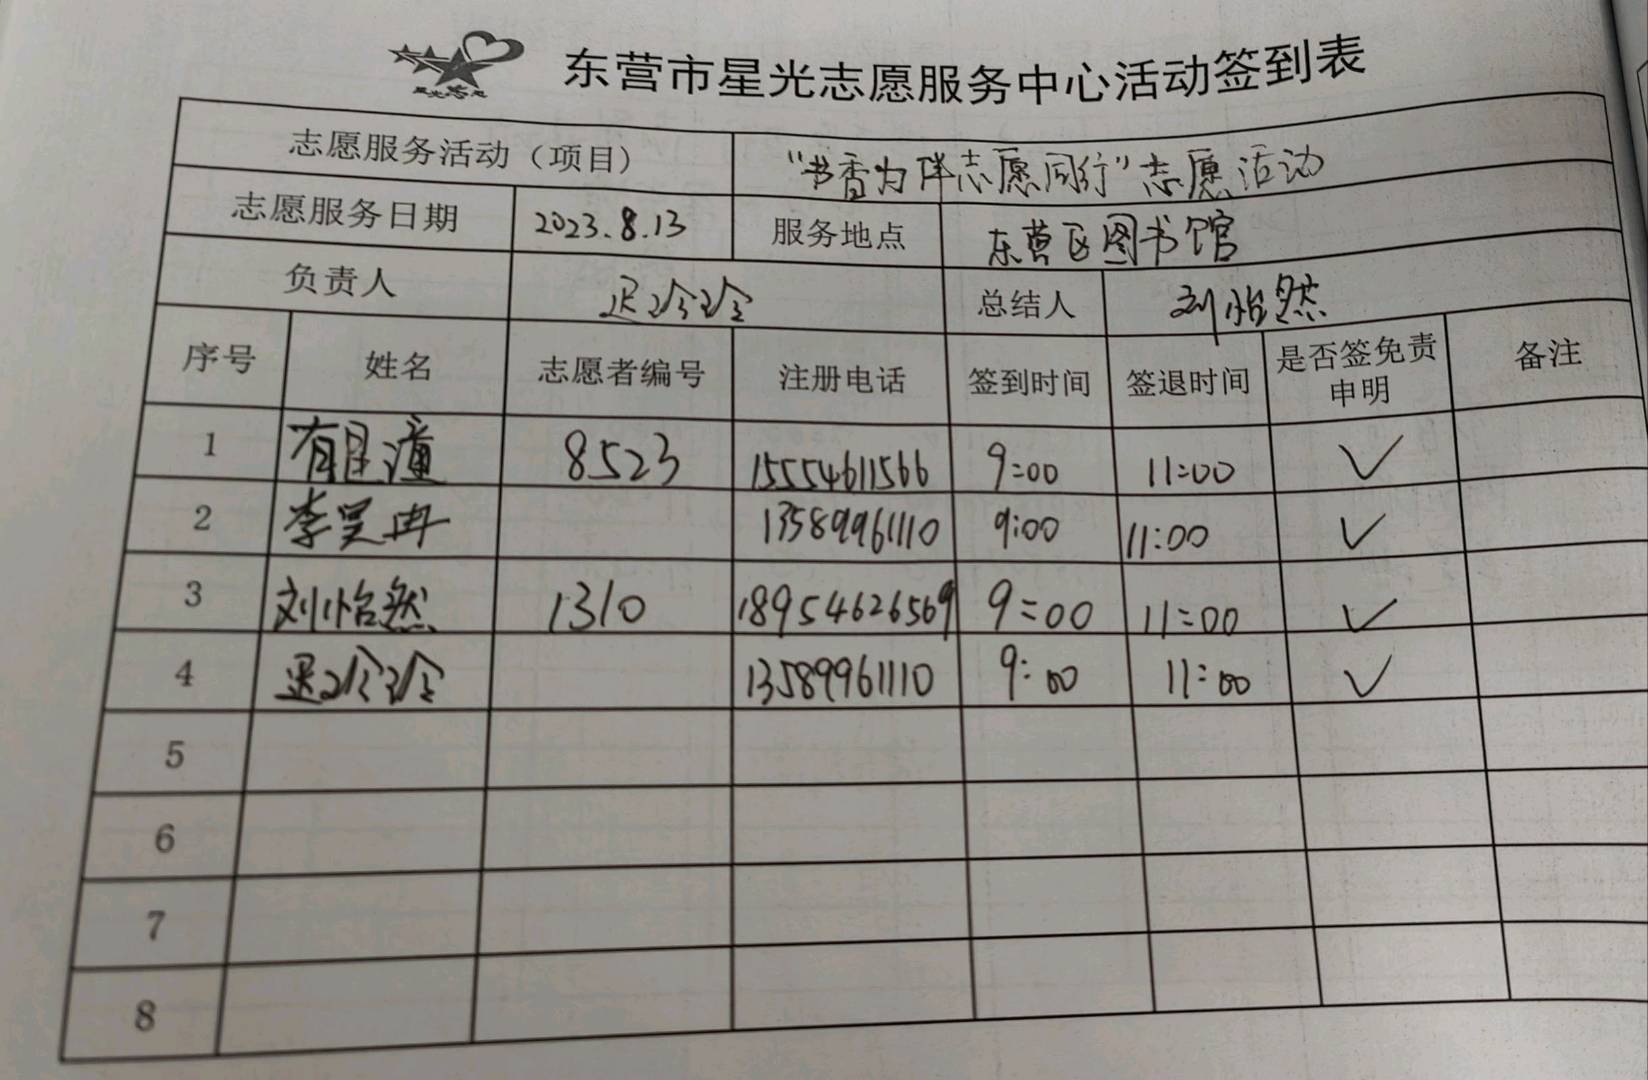 星光志愿
东营市星光志愿服务中心活动签到表
志愿服务活动（项目） “书香为伴志愿同行”志愿活动
志愿服务日期 2023.8.13 服务地点 东营区图书馆
负责人 总结人 刘怡然
序号 姓名 志愿者编号 注册电话 签到时间 签退时间 是否签免责申明 备注
1 8523 15554611566 9:00 11:00 ✓
2 李昊冉 13589961110 9:00 11:00 ✓
3 刘怡然 1310 18954626569 9:00 11:00 ✓
4 13589961110 9:00 11:00 ✓
5
6
7
8